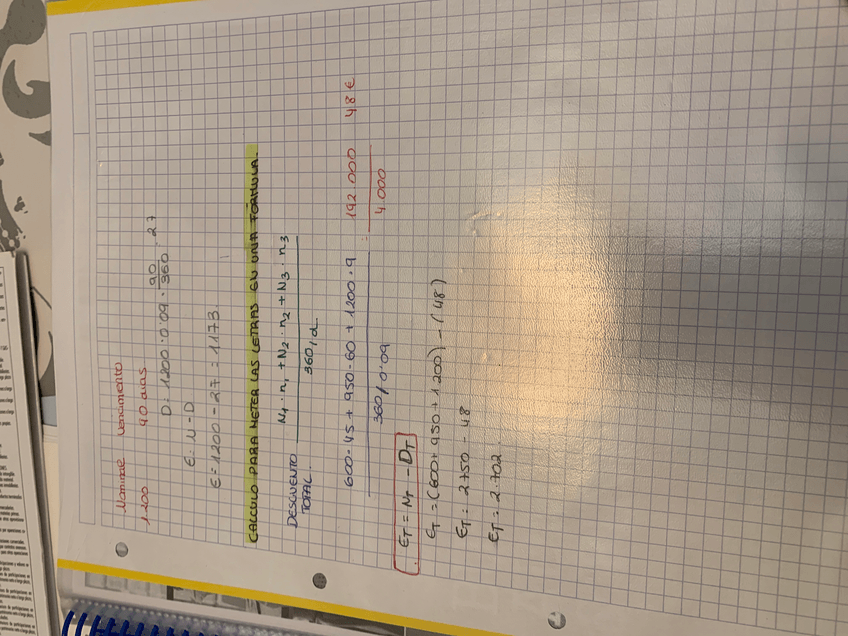 Nominal Vencimiento
1.200 90 días
D: 1200 · 0'09 · 90/360 : 27
E: N - D
E = 1200 - 27 : 1173.
CALCULO PARA METER LAS LETRAS EN UNA FÓRMULA.
DESCUENTO TOTAL. N1 · n1 + N2 · n2 + N3 · n3
360/d
600 · 45 + 950 · 60 + 1200 · 9 : 192.000 48€
360/0'09 4.000
ET = NT - DT
ET = (600 + 950 + 1200) - (48)
ET = 2750 - 48
ET = 2.702.